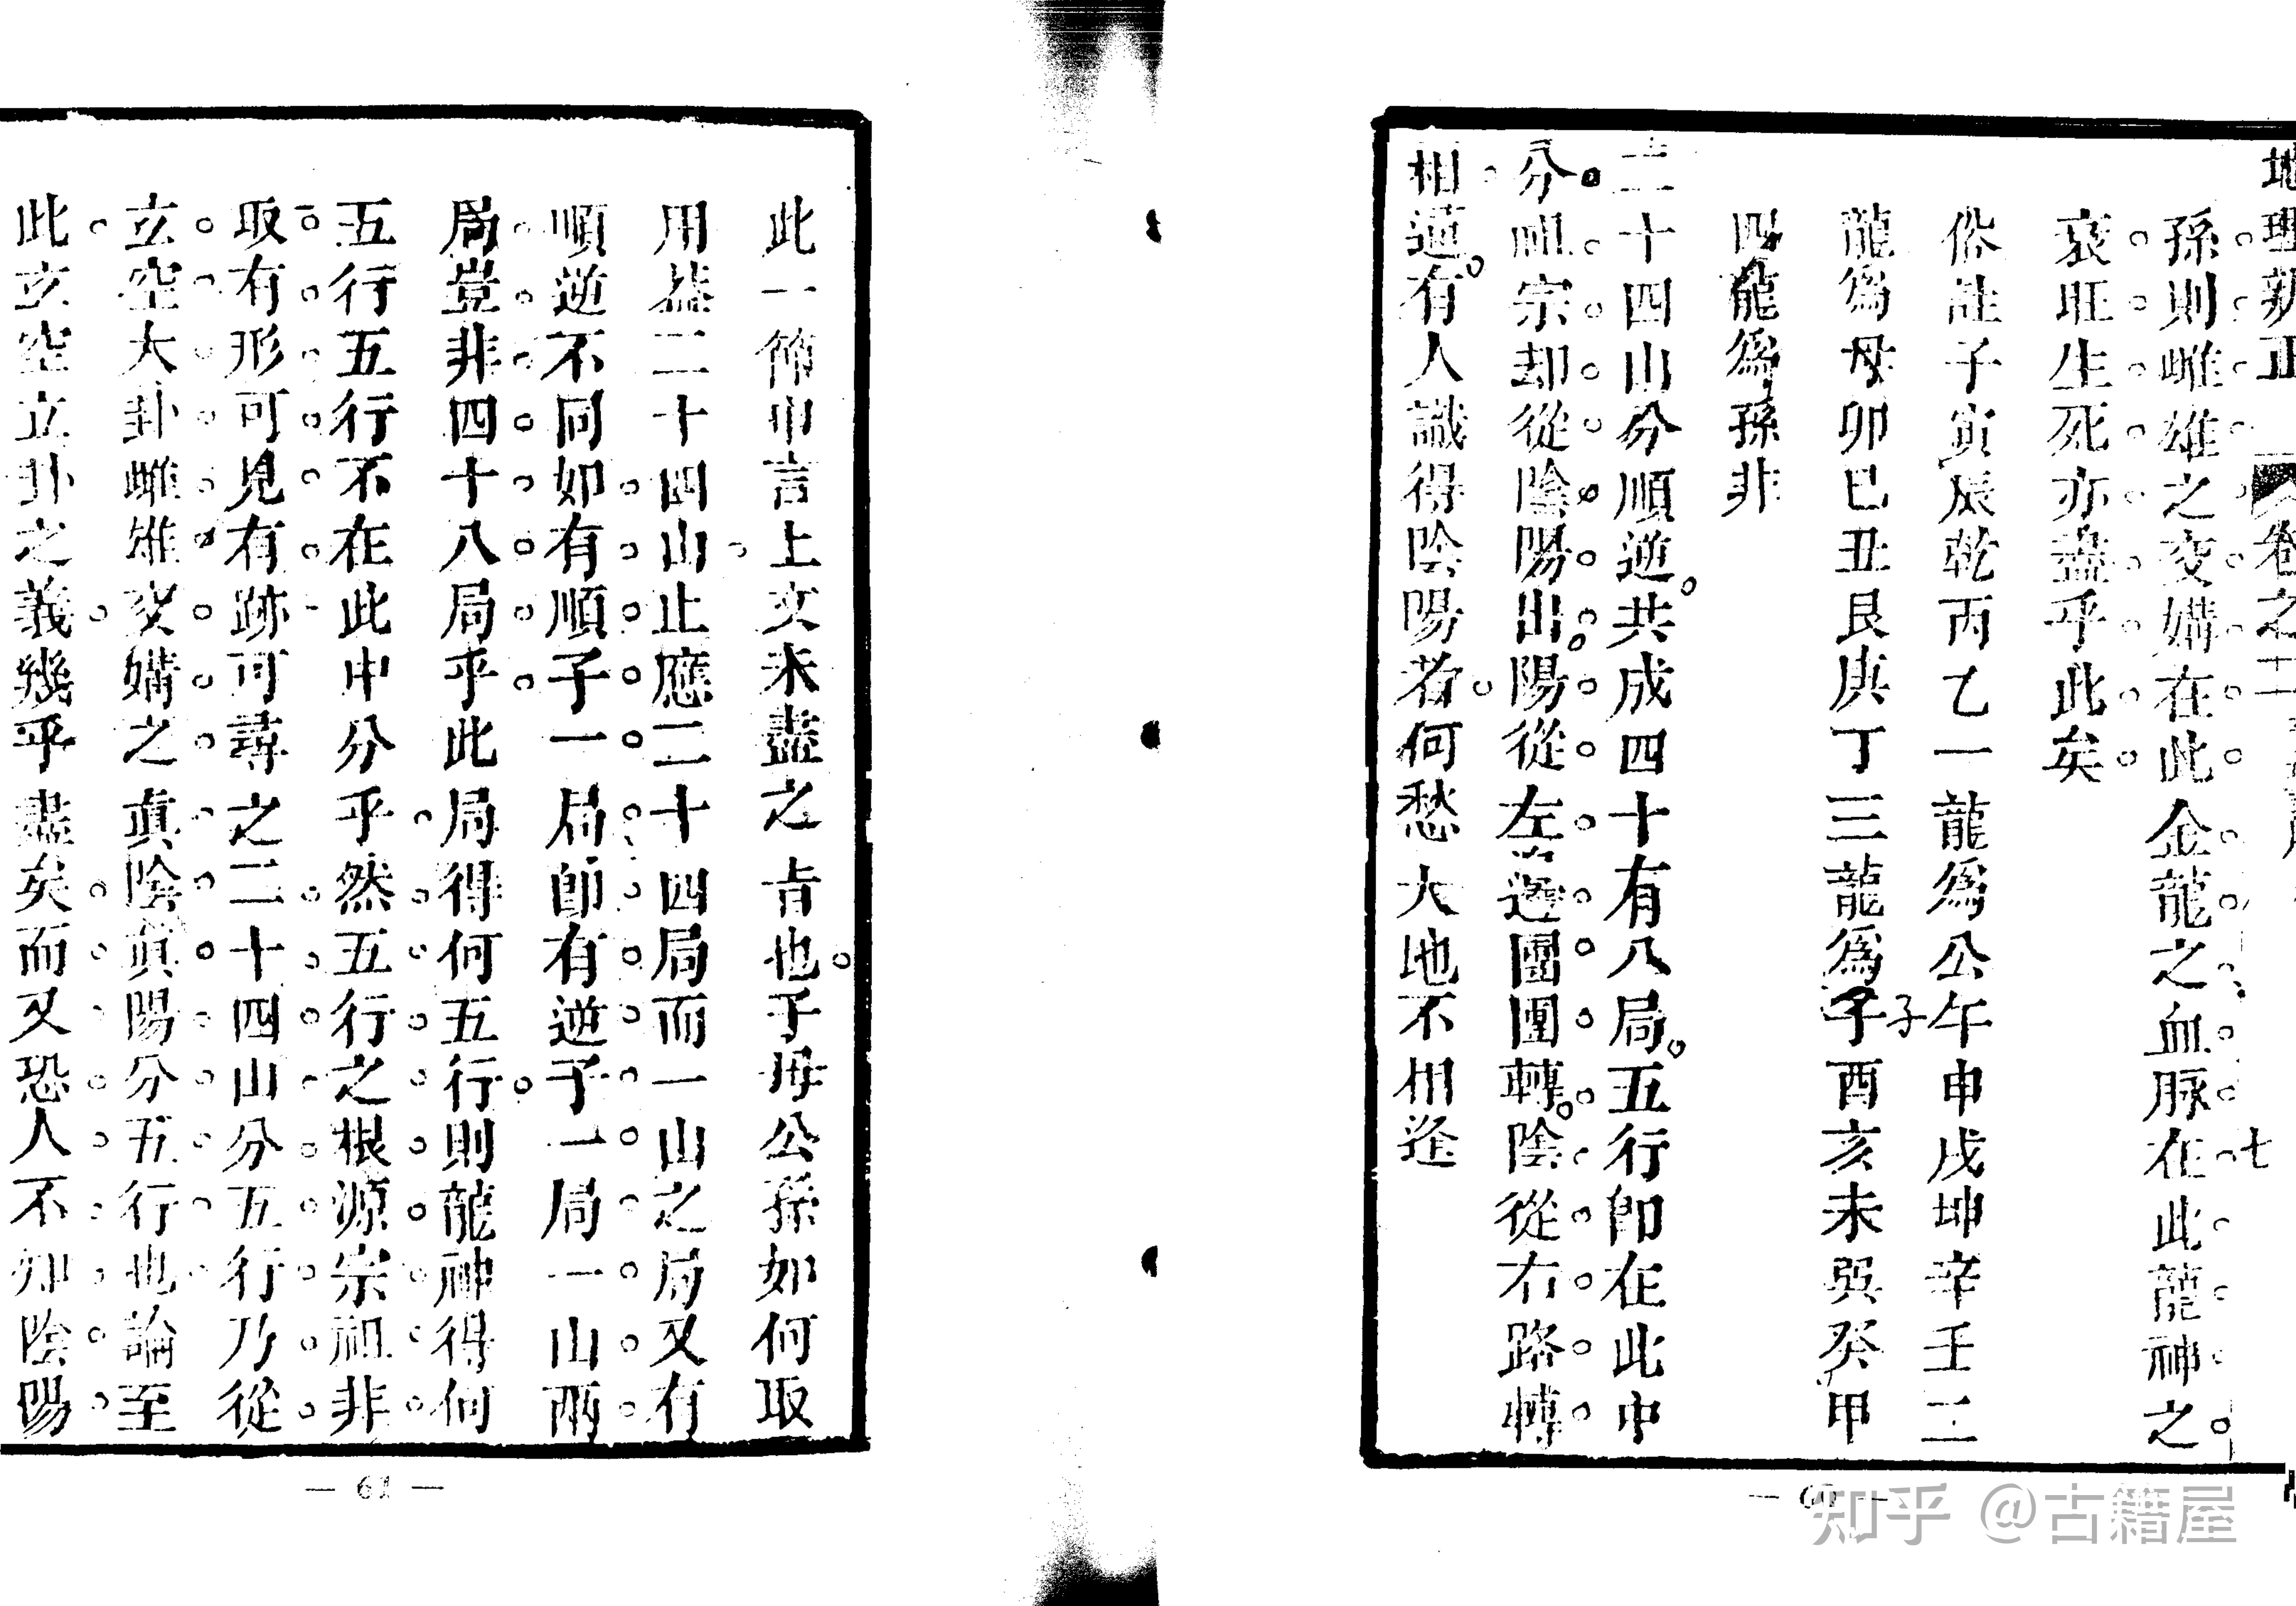 地理辨正 卷之二 七
孫則雌雄之交媾在此金龍之血脉在此龍神之
衰旺生死亦盡乎此矣
俗註子寅辰乾丙乙一龍為公午申戌坤辛壬二
龍為母卯巳丑艮庚丁三龍為子酉亥未巽癸甲
子
四龍為孫非
二十四山分順逆共成四十有八局五行卽在此中
分祖宗却從陰陽出陽從左邊團團轉陰從右路轉
相通有人識得陰陽者何愁大地不相逢
— 60 —
此一節申言上文未盡之旨也子母公孫如何取
用葢二十四山止應二十四局而一山之局又有
順逆不同如有順子一局卽有逆子一局一山兩
局豈非四十八局乎此局得何五行則龍神得何
五行五行不在此中分乎然五行之根源宗祖非
取有形可見有跡可尋之二十四山分五行乃從
玄空大卦雌雄交媾之眞陰眞陽分五行也論至
此玄空立卦之義幾乎盡矣而又恐人不知陰陽
— 61 —
知乎 @古籍屋